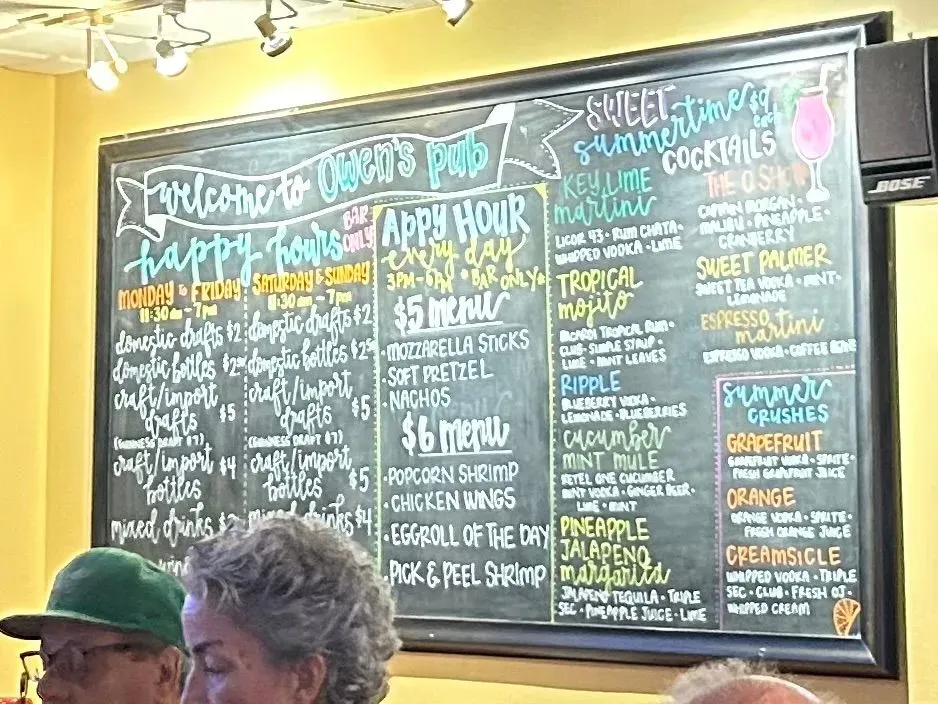 welcome to Owen's pub
happy hours BAR ONLY
MONDAY to FRIDAY
11:30 am - 7pm
domestic drafts $2
domestic bottles $2
craft/import
drafts $5
(GUINNESS DRAFT $7)
craft/import $4
bottles
mixed drinks
SATURDAY & SUNDAY
11:30am - 7pm
domestic drafts $2
domestic bottles $2
craft/import
drafts $5
(GUINNESS DRAFT $7)
craft/import
bottles $5
mixed drinks $4
APPY HOUR
every day
3PM-6PM • BAR ONLY
$5 menu
• MOZZARELLA STICKS
• SOFT PRETZEL
• NACHOS
$6 menu
• POPCORN SHRIMP
• CHICKEN WINGS
• EGGROLL OF THE DAY
• PICK & PEEL SHRIMP
SWEET
summertime $9 each
COCKTAILS
KEY LIME
martini
LICOR 43 • RUM CHATA •
WHIPPED VODKA • LIME
TROPICAL
mojito
BACARDI TROPICAL RUM •
CLUB • SIMPLE SYRUP •
LIME • MINT LEAVES
RIPPLE
BLUEBERRY VODKA •
LEMONADE • BLUEBERRIES
cucumber
MINT MULE
KETEL ONE CUCUMBER
MINT VODKA • GINGER BEER •
LIME • MINT
PINEAPPLE
JALAPENO
margarita
JALAPENO TEQUILA • TRIPLE
SEC • PINEAPPLE JUICE • LIME
THE O SHOW
CAPTAIN MORGAN •
MALIBU • PINEAPPLE •
CRANBERRY
SWEET PALMER
SWEET TEA VODKA • MINT •
LEMONADE
ESPRESSO
martini
ESPRESSO VODKA • COFFEE
summer
CRUSHES
GRAPEFRUIT
GRAPEFRUIT VODKA • SPRITE •
FRESH GRAPEFRUIT JUICE
ORANGE
ORANGE VODKA • SPRITE •
FRESH ORANGE JUICE
CREAMSICLE
WHIPPED VODKA • TRIPLE
SEC • CLUB • FRESH OJ •
WHIPPED CREAM
BOSE